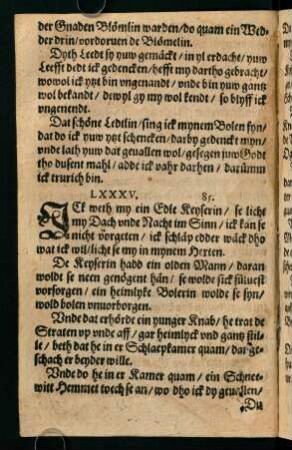 der Gnaden Blömlin warden/ do quam ein Wed-
der drin/ vordoruen de Blömelin.
Dyth Leedt sy yuw gemäckt/ in yl erdacht/ yuw
Leefft didt ick gedencken/ hefft my dartho gebracht/
wowol ick ytzt bin vngenandt/ vnde bin yuw gantz
wol bekandt/ dewyl gy my wol kendt/ so blyff ick
vngenendt.
Dat schöne Ledtlin/ sing ick mynem Bolen fyn/
dat do ick yuw ytzt schencken/ darby gedenckt myn/
vnde lath yuw dat geuallen wol/ gesegen juw Godt
tho dusent mahl/ adde ick vahr darhen/ darümm
ick trurich bin.
LXXXV. 85.
ICk weth my ein Edle Keyserin/ se licht
my Dach vnde Nacht im Sinn/ ick kan se
nicht vorgeten/ ick schläp edder wäck dho
wat ick wil/ licht se my in mynem Herten.
De Keyserin hadd ein olden Mann/ daran
woldt se neen genögent hän/ se wolde sick süluest
vorsorgen/ ein heimlyke Bolerin wolde se syn/
wold bolen vnuorborgen.
Vnde dat erhörde ein yunger Knab/ he trat de
Straten vp vnde aff/ gar heimlyck vnd gantz stil-
le/ beth dat he in er Schlaepkamer quam/ dar ge-
schach er beyder wille.
Vnde do he in er Kamer quam/ ein Schnee-
witt Hemmet toech se an/ wo dho ick dy geuallen/
Du